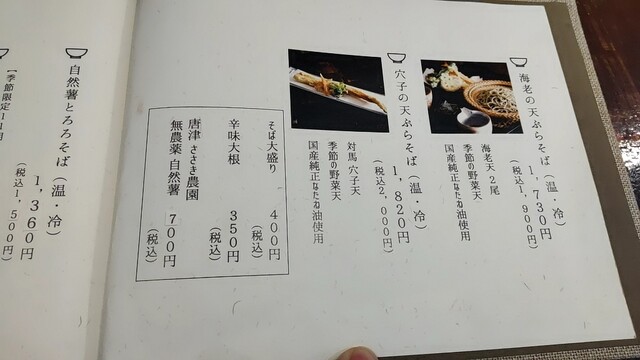 海老の天ぷらそば（温・冷）
1,730円
（税込1,900円）
海老天 2尾
季節の野菜天
国産純正なたね油使用
穴子の天ぷらそば（温・冷）
1,820円
（税込2,000円）
対馬 穴子天
季節の野菜天
国産純正なたね油使用
そば大盛り 400円
（税込）
辛味大根 350円
（税込）
唐津 ささき農園
無農薬 自然薯 700円
（税込）
自然薯とろろそば（温・冷）
1,360円
（税込1,500円）
【季節限定